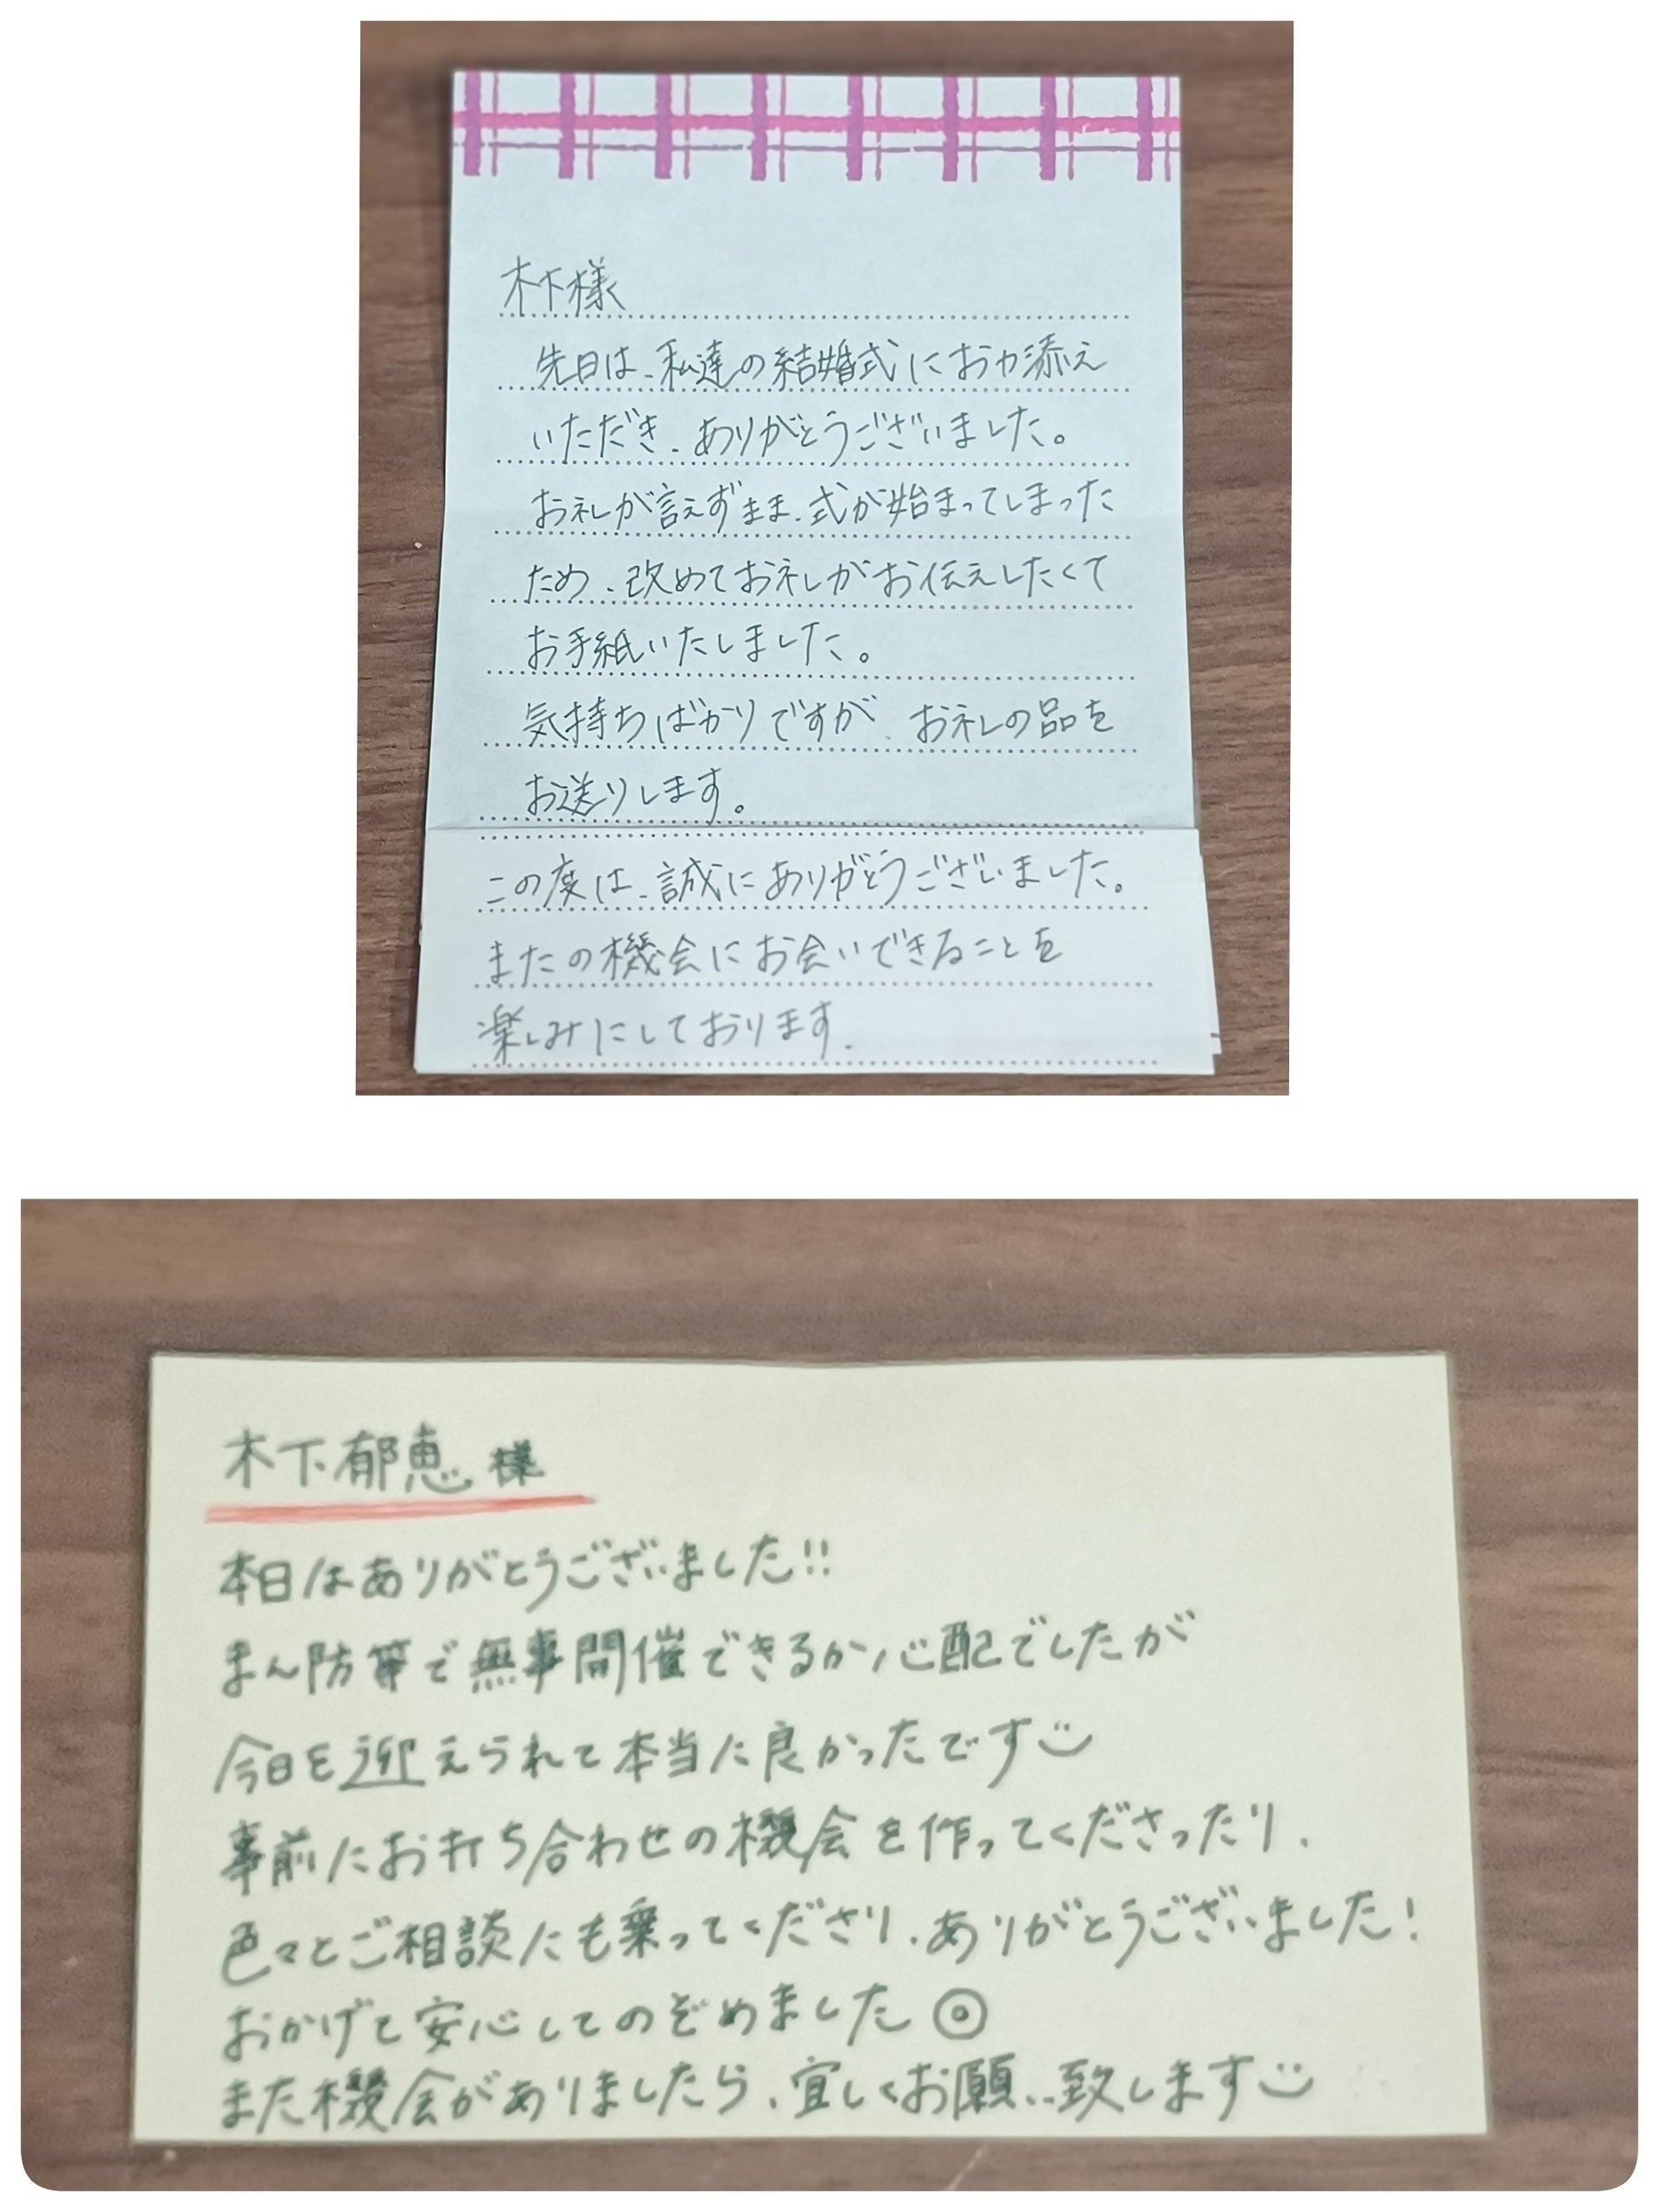 木下様
先日は、私達の結婚式にお力添え
いただき、ありがとうございました。
お礼が言えずまま、式が始まってしまった
ため、改めてお礼がお伝えしたくて
お手紙いたしました。
気持ちばかりですが、お礼の品を
お送りします。
この度は、誠にありがとうございました。
またの機会にお会いできることを
楽しみにしております。
木下郁恵 様
本日はありがとうございました!!
まん防等で無事開催できるか心配でしたが
今日を迎えられて本当に良かったです
事前にお打ち合わせの機会を作ってくださったり、
色々とご相談にも乗ってくださり、ありがとうございました!
おかげで安心してのぞめました◎
また機会がありましたら、宜しくお願い致します